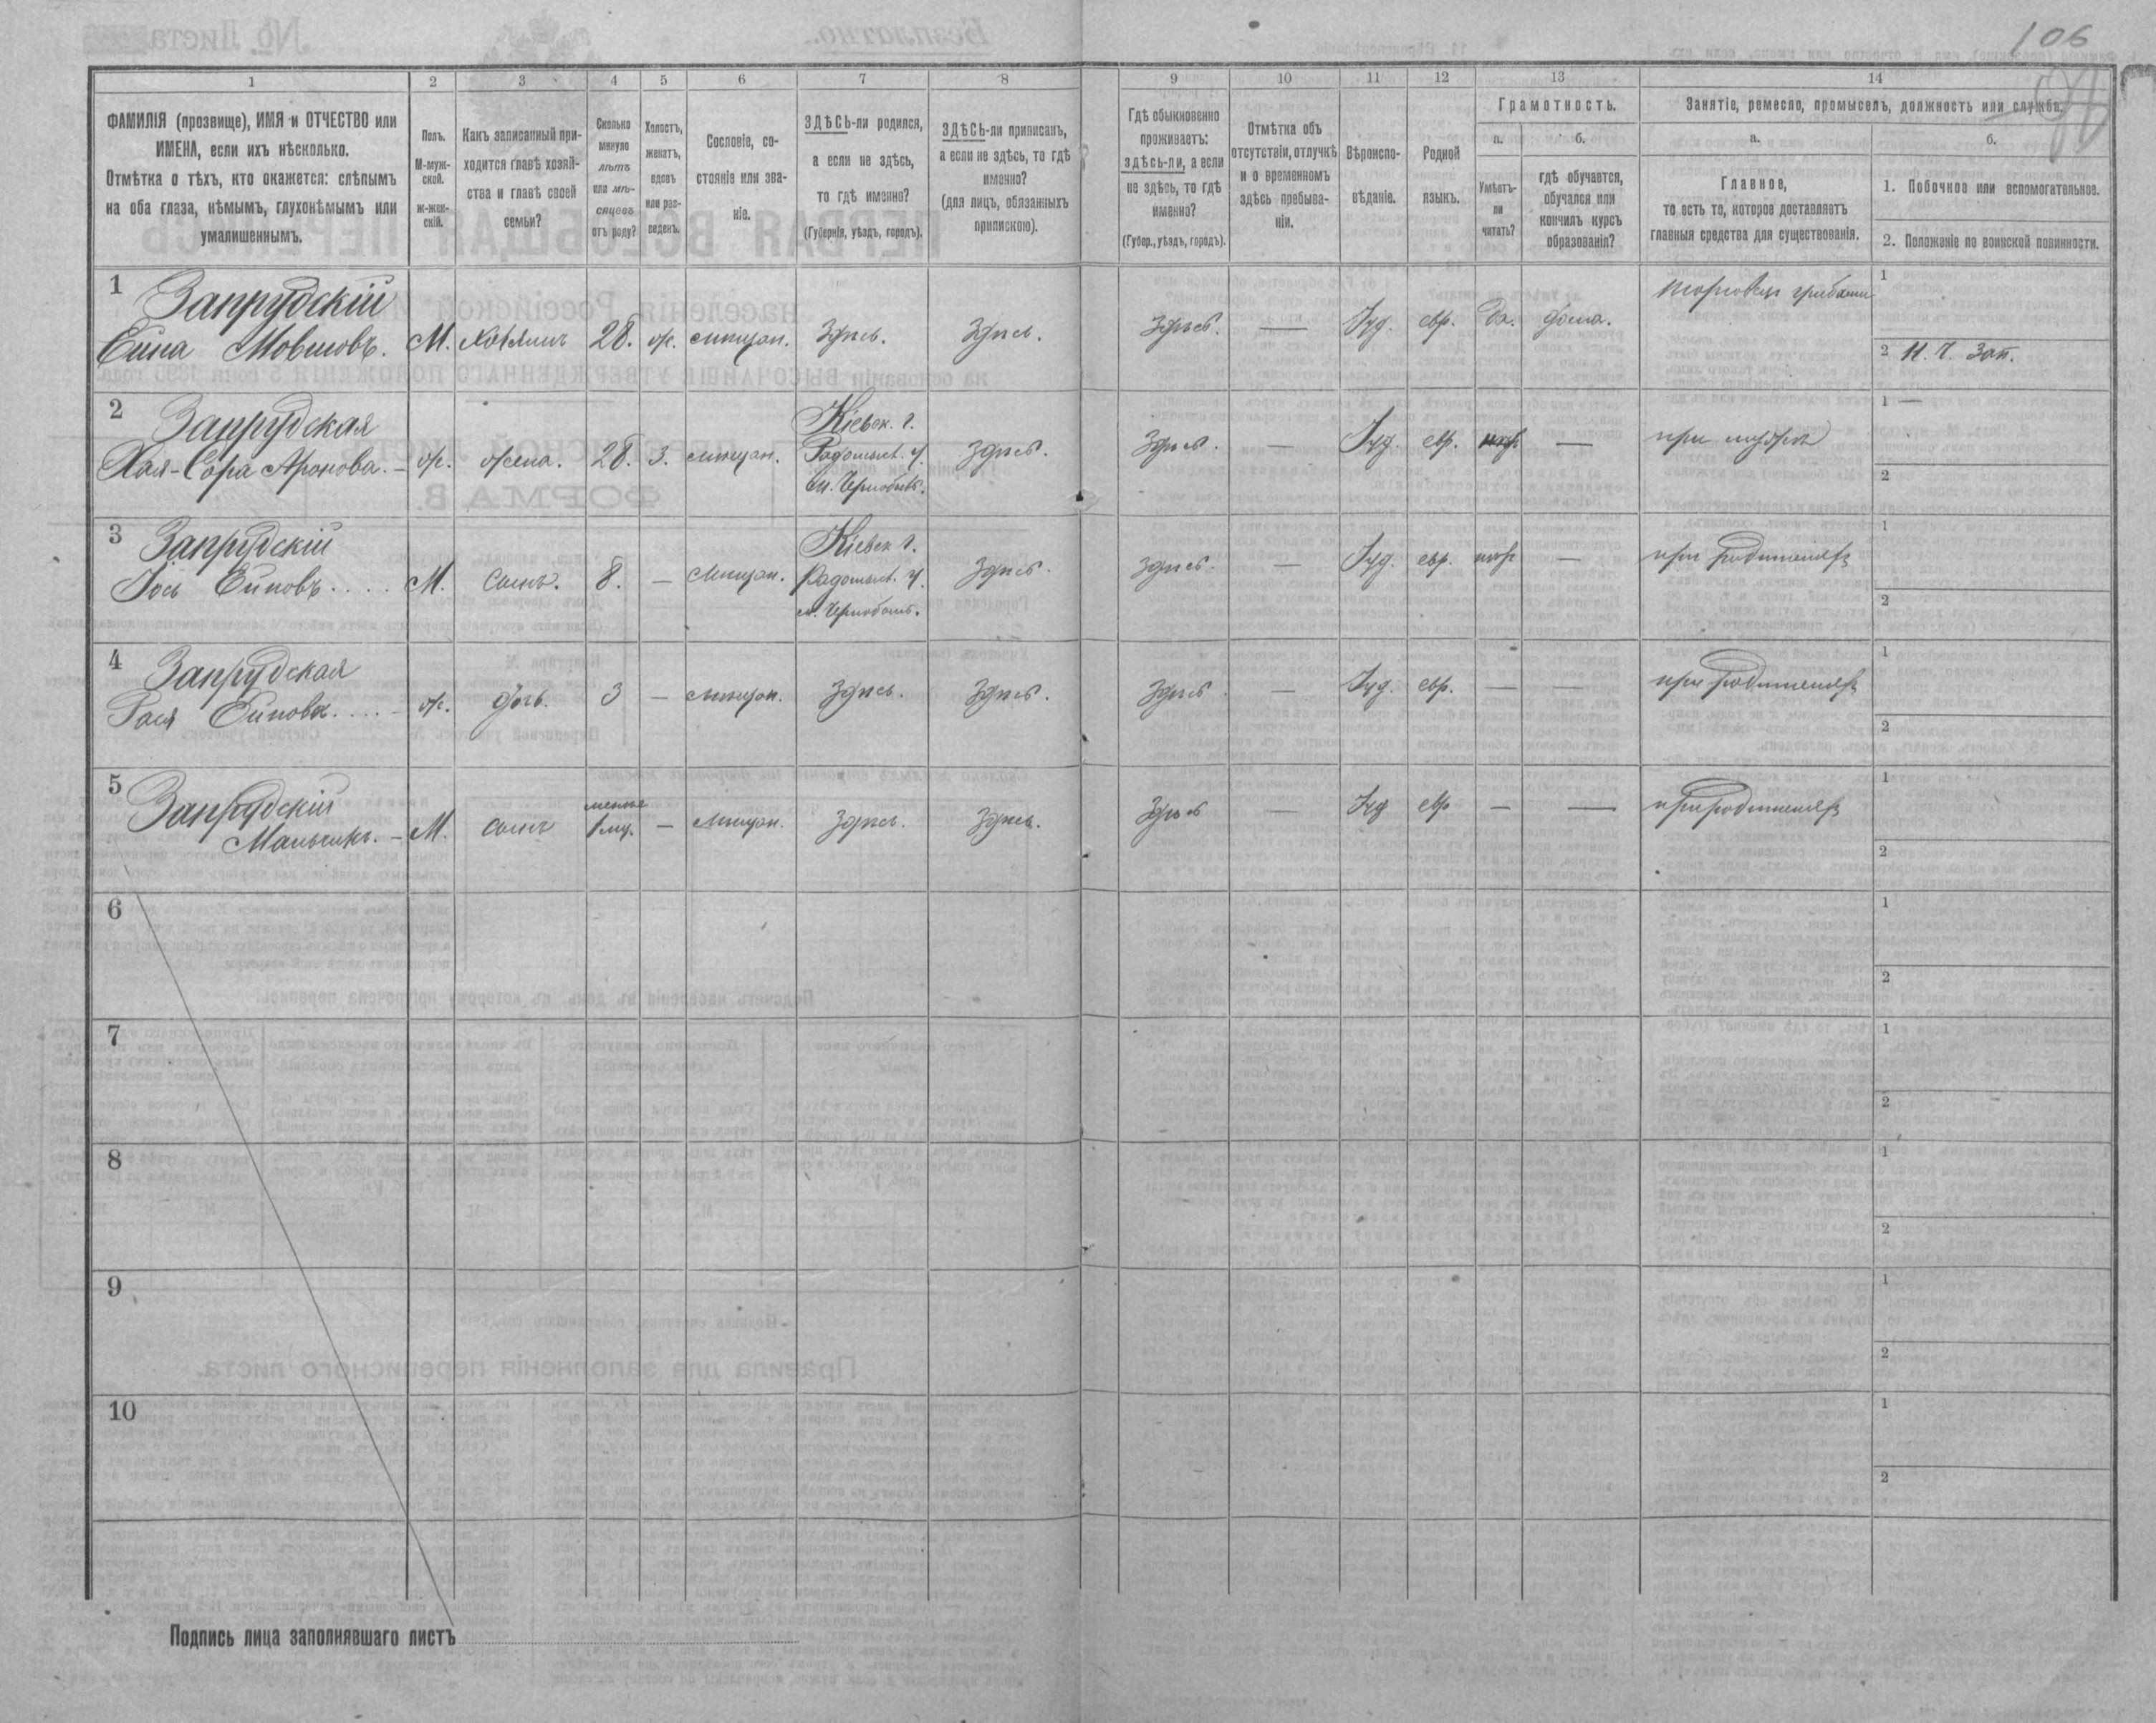 106
1 2 3 4 5 6 7 8 9 10 11 12 13 14
ФАМИЛІЯ (прозвище), ИМЯ и ОТЧЕСТВО или
ИМЕНА, если ихъ нѣсколько.
Отмѣтка о тѣхъ, кто окажется: слѣпымъ
на оба глаза, нѣмымъ, глухонѣмымъ или
умалишеннымъ.
Полъ.
М-муж-
ской.
ж-жен-
скій.
Какъ записанный при-
ходится главѣ хозяй-
ства и главѣ своей
семьи?
Сколько
минуло
лѣтъ
или мѣ-
сяцевъ
отъ роду?
Холостъ,
женатъ,
вдовъ
или раз-
веденъ.
Сословіе, со-
стояніе или зва-
ніе.
ЗДѢСЬ-ли родился,
а если не здѣсь,
то гдѣ именно?
(Губернія, уѣздъ, городъ).
ЗДѢСЬ-ли приписанъ,
а если не здѣсь, то гдѣ
именно?
(для лицъ, обязанныхъ
припискою).
Гдѣ обыкновенно
проживаетъ:
здѣсь-ли, а если
не здѣсь, то гдѣ
именно?
(Губер., уѣздъ, городъ).
Отмѣтка объ
отсутствіи, отлучкѣ
и о временномъ
здѣсь пребыва-
ніи.
Вѣроиспо-
вѣданіе.
Родной
языкъ.
Грамотность.
а.
Умѣетъ-
ли
читать?
б.
гдѣ обучается,
обучался или
кончилъ курсъ
образованія?
Занятіе, ремесло, промыселъ, должность или служба.
а.
Главное,
то есть то, которое доставляетъ
главныя средства для существованія.
б.
1. Побочное или вспомогательное.
2. Положеніе по воинской повинности.
1 Запрудскій
Ейна Мовшовъ. М. хозяинъ 28. ж. мѣщан. Здѣсь. Здѣсь. Здѣсь. — Іуд. евр. Да. дома. торговецъ грибами
1
2 Н. Ч. Зап.
2 Запрудская
Хая-Сора Аронова. — ж. жена. 28. З. мѣщан.
Кіевск. г.
Радомысл. у.
м. Чернобыль.
Здѣсь. Здѣсь. — Іуд. евр. — при мужѣ
1 —
2
3 Запрудскій
Іось Ейновъ.... М. сынъ. 8. — мѣщан.
Кіевск г.
Радомысл. у.
м. Чернобыль.
Здѣсь. Здѣсь. — Іуд. евр. — при родителяхъ
1
2
4 Запрудская
Рася Ейнова.... ж. дочь. 3 — мѣщан. Здѣсь. Здѣсь. Здѣсь. — Іуд. евр. — — при родителяхъ
1
2
5 Запрудскій
Мальчикъ. — М. сынъ менѣе
1 мц. — мѣщан. Здѣсь. Здѣсь. Здѣсь — Іуд евр — — при родителяхъ
1
2
6
1
2
7
1
2
8
1
2
9
1
2
10
1
2
Подпись лица заполнявшаго листъ